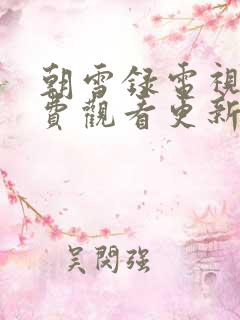 朝雪録電視
費觀看更新
吴閔强